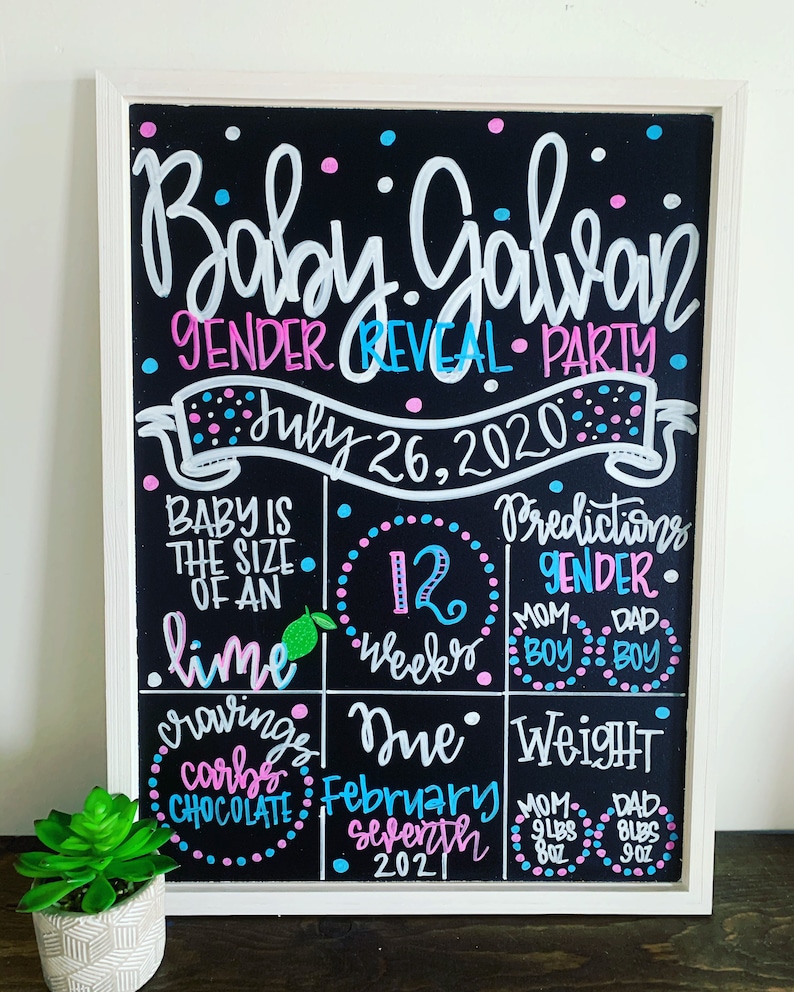 Baby Galvan
GENDER REVEAL PARTY
July 26, 2020
BABY IS
THE SIZE
OF AN
lime
12
weeks
Predictions
GENDER
MOM
BOY
DAD
BOY
cravings
carbs
CHOCOLATE
Due
February
seventh
2021
WEIGHT
MOM
9LBS
8OZ
DAD
8LBS
9OZ